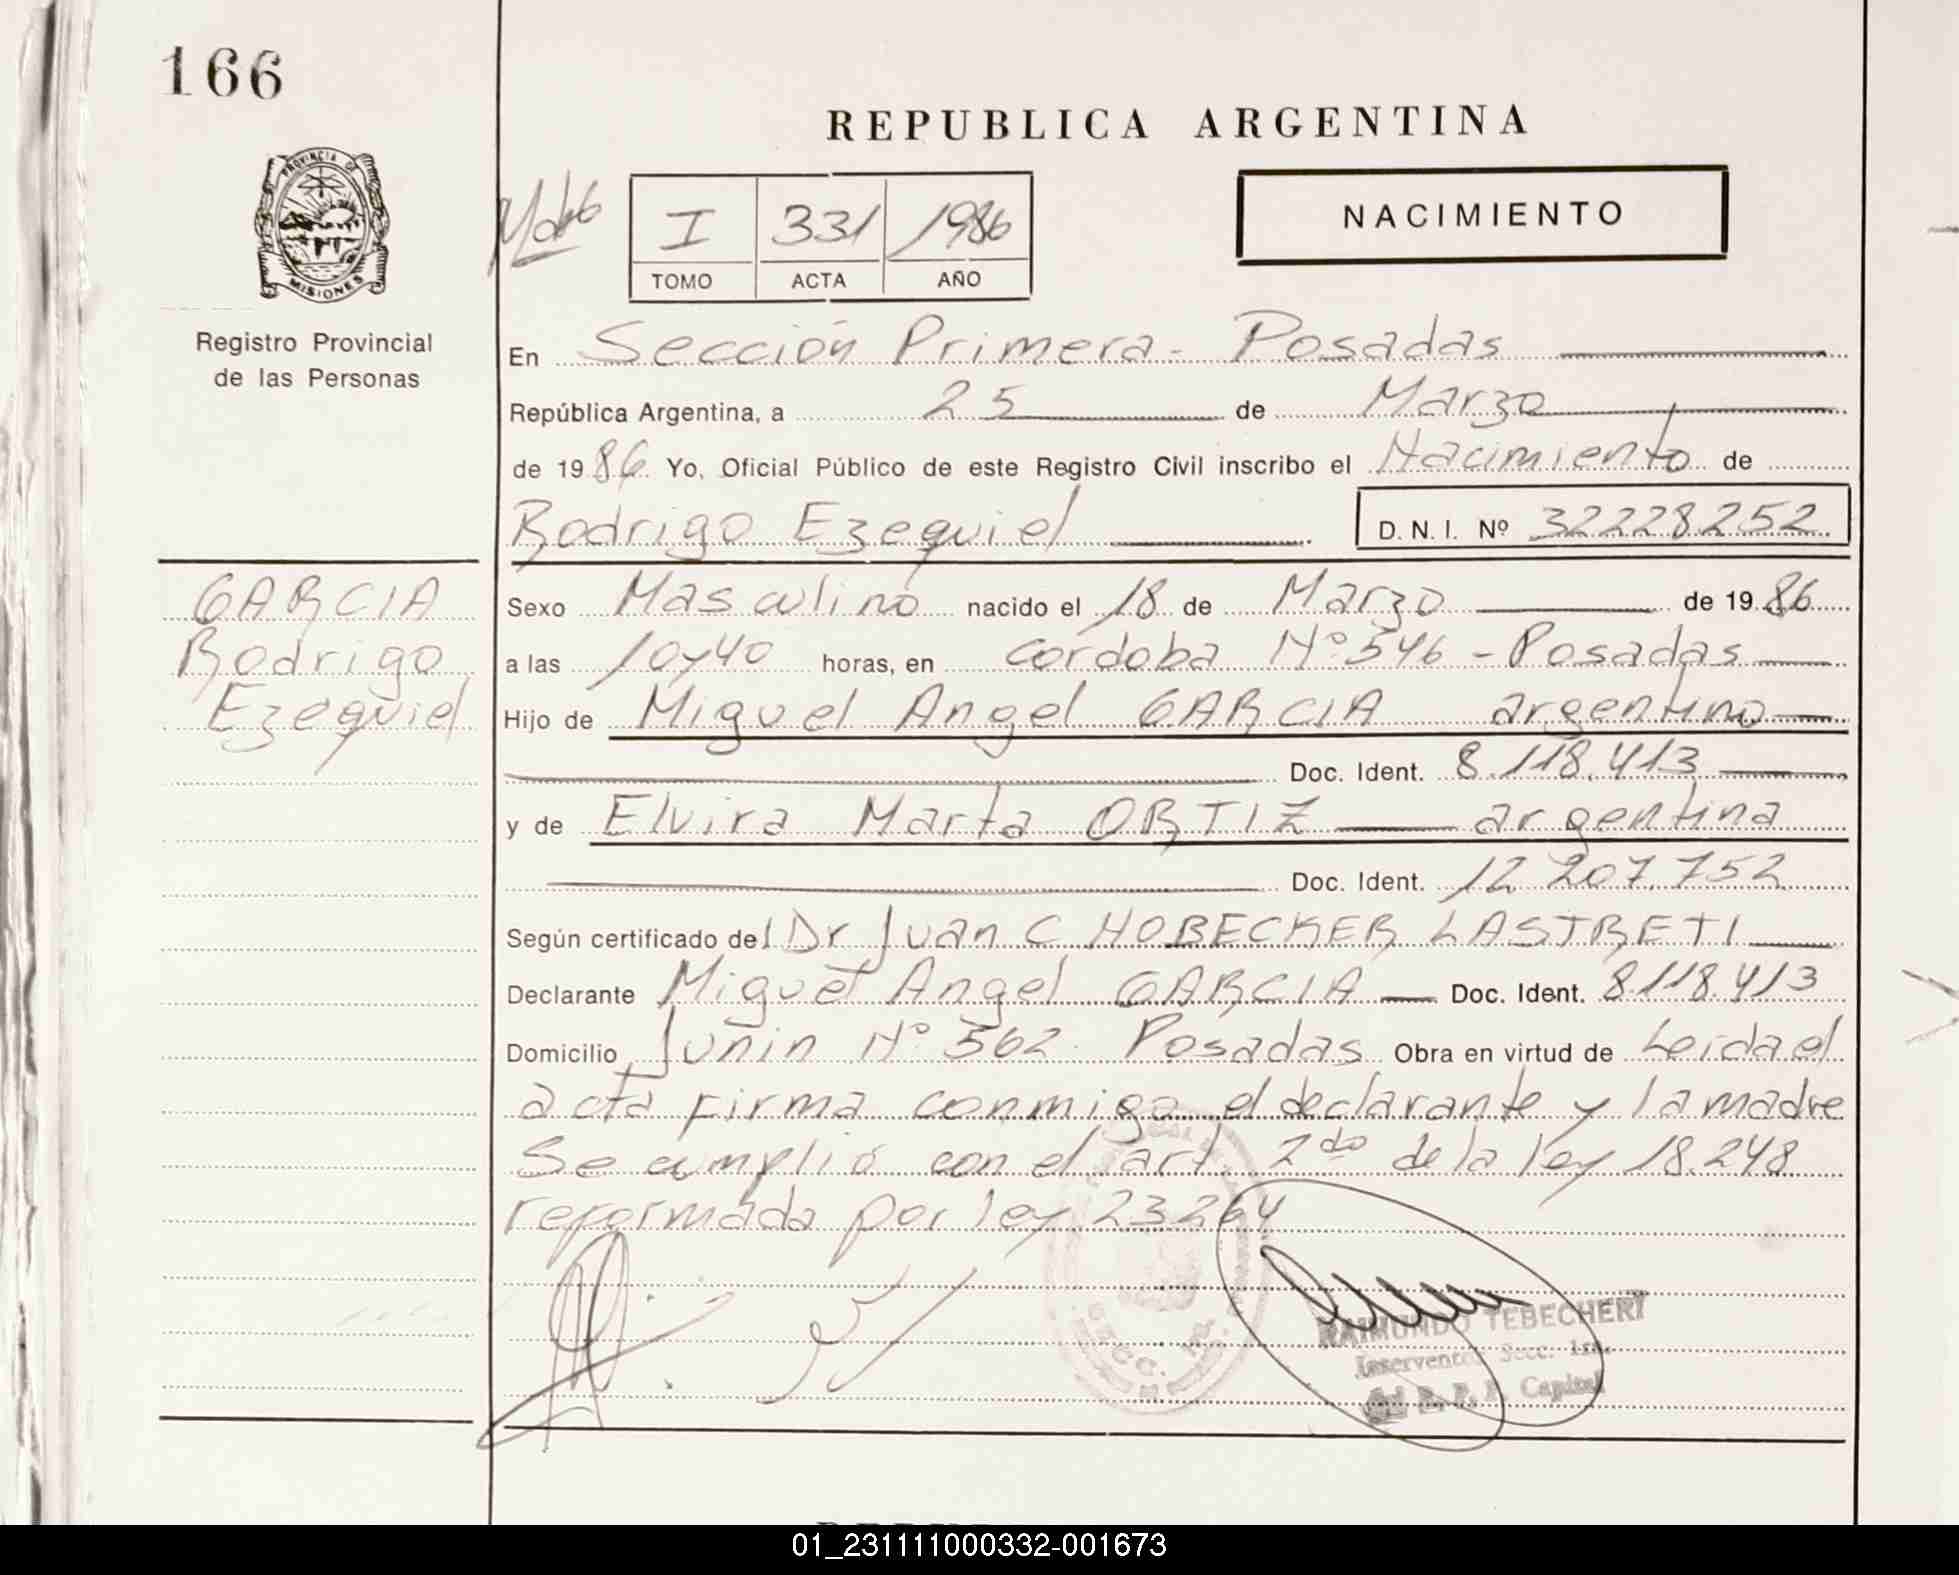 166
REPUBLICA ARGENTINA
PROVINCIA DE
MISIONES
Registro Provincial
de las Personas
I 331 1986
TOMO ACTA AÑO
NACIMIENTO
En Sección Primera - Posadas
República Argentina, a 25 de Marzo
de 1986. Yo, Oficial Público de este Registro Civil inscribo el Nacimiento de
Rodrigo Ezequiel D. N. I. Nº 32228252
GARCIA
Rodrigo
Ezequiel
Sexo Masculino nacido el 18 de Marzo de 1986
a las 10y40 horas, en cordoba Nº 546 - Posadas
Hijo de Miguel Angel GARCIA argentino
Doc. Ident. 8.118.413
y de Elvira Marta ORTIZ argentina
Doc. Ident. 12 207.752
Según certificado del Dr Juan C HOBECKER LASTRETI
Declarante Miguel Angel GARCIA Doc. Ident. 8118.413
Domicilio Junin Nº 562 Posadas Obra en virtud de Leida el
acta firma conmigo el declarante y la madre
Se cumplió con el art. 2do de la ley 18.248
reformada por ley 23264
RAIMUNDO TEBECHERI
Secc. 1ra.
Capital
01_231111000332-001673